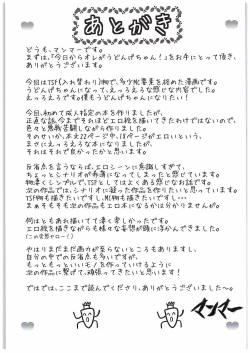 あとがき
どうも、マンマーです。
まずは、「今日からオレがうどんげちゃん!」をお手にとって頂き、
ありがとうございます。
今回はTSF(入れ替わり)物で、多少MC要素を絡めた漫画です。
うどんげちゃんになって、えっろえろな感じな内容でした。
えっろえろです。僕もうどんげちゃんになりたい!
今回、初めて成人指定の本を作りましたが、
正直な話、今までそれほどエロ絵を描いてきたわけではないので、
色々と悪戦苦闘しながら作りました。
そのせいか、本文22ページ中、18ページがエロいという、
まさかの感じになりましたが、
それはそれで良かったかと思います。
反省点を言うならば、エロシーンに意識しすぎて、
ちょっとシナリオが希薄になってしまったと感じています。
物凄くシンプルで、TSFとしてはよくある感じなお話です。
次の作品では、シナリオに凝った作品を作りたいと思っています。
TSF物も描きたいですし、MC物も描きたいですし…
まぁそもそも次の作品もエロ本になるかは分かりませんが。
何はともあれ描いてて凄く楽しかったです。
エロ絵を描きながらも様々な妄想が頭に浮かんできました。
やはりまだまだ画力が至らないところもありますし、
自分の中での反省点も多いですが、
もっともっといいモノを作っていけるように
次の作品に繋げて、頑張ってきたいと思います!
ではでは、ここまで読んでくださり、ありがとうございました~
マンマー